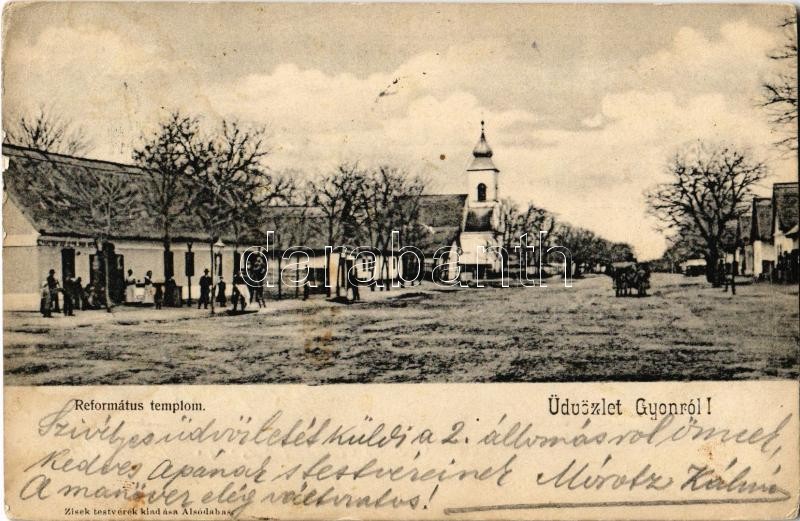 darabanth
Református templom.
Üdvözlet Gyonról!
Szívélyes üdvözletét küldi a 2. állomásról Önnek,
kedves Apának s testvéreinek Mórotz Kálmán
A manőver elég változatos!
Zisek testvérek kiadása Alsódabas.